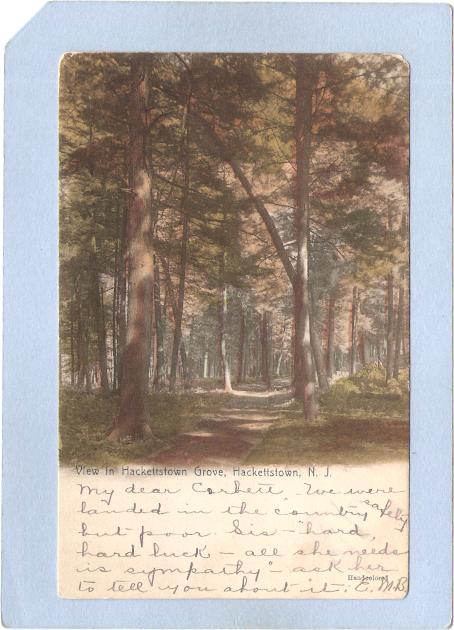 View in Hackettstown Grove, Hackettstown, N. J.
My dear Corbett, We were
landed in the country safely
but poor Sis - "hard,
hard luck - all she needs
is sympathy" - ask her
to tell you about it. E. M. B.
Handcolored